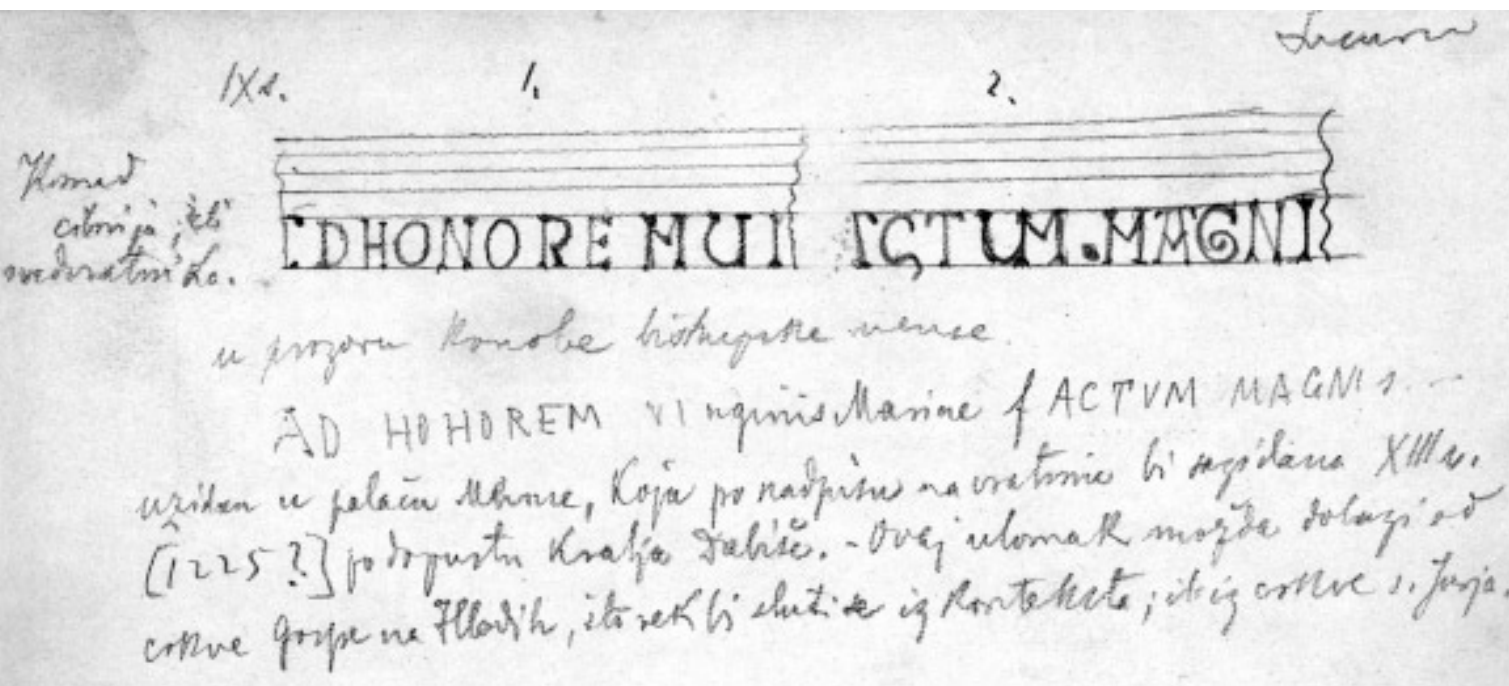 IX s.
1.
2.
Komad
ciborija, ili
[DHONORE MUI
ICTUM.MAGNI
u prozoru konobe biskupske mense
AD HOHOREM VI rginis Mariae f ACTVM MAGNI s. —
uzidan u palaču Mense, koja po nadpisu na vratima bi sagidana XIII v.
[1225 ?] po dopustu Kralja Dabiše. - Ovaj ulomak možda dolazi od
crkve Gospe na , što rek bi sluti se iz konteksta; il iz crkve s. Jurja.